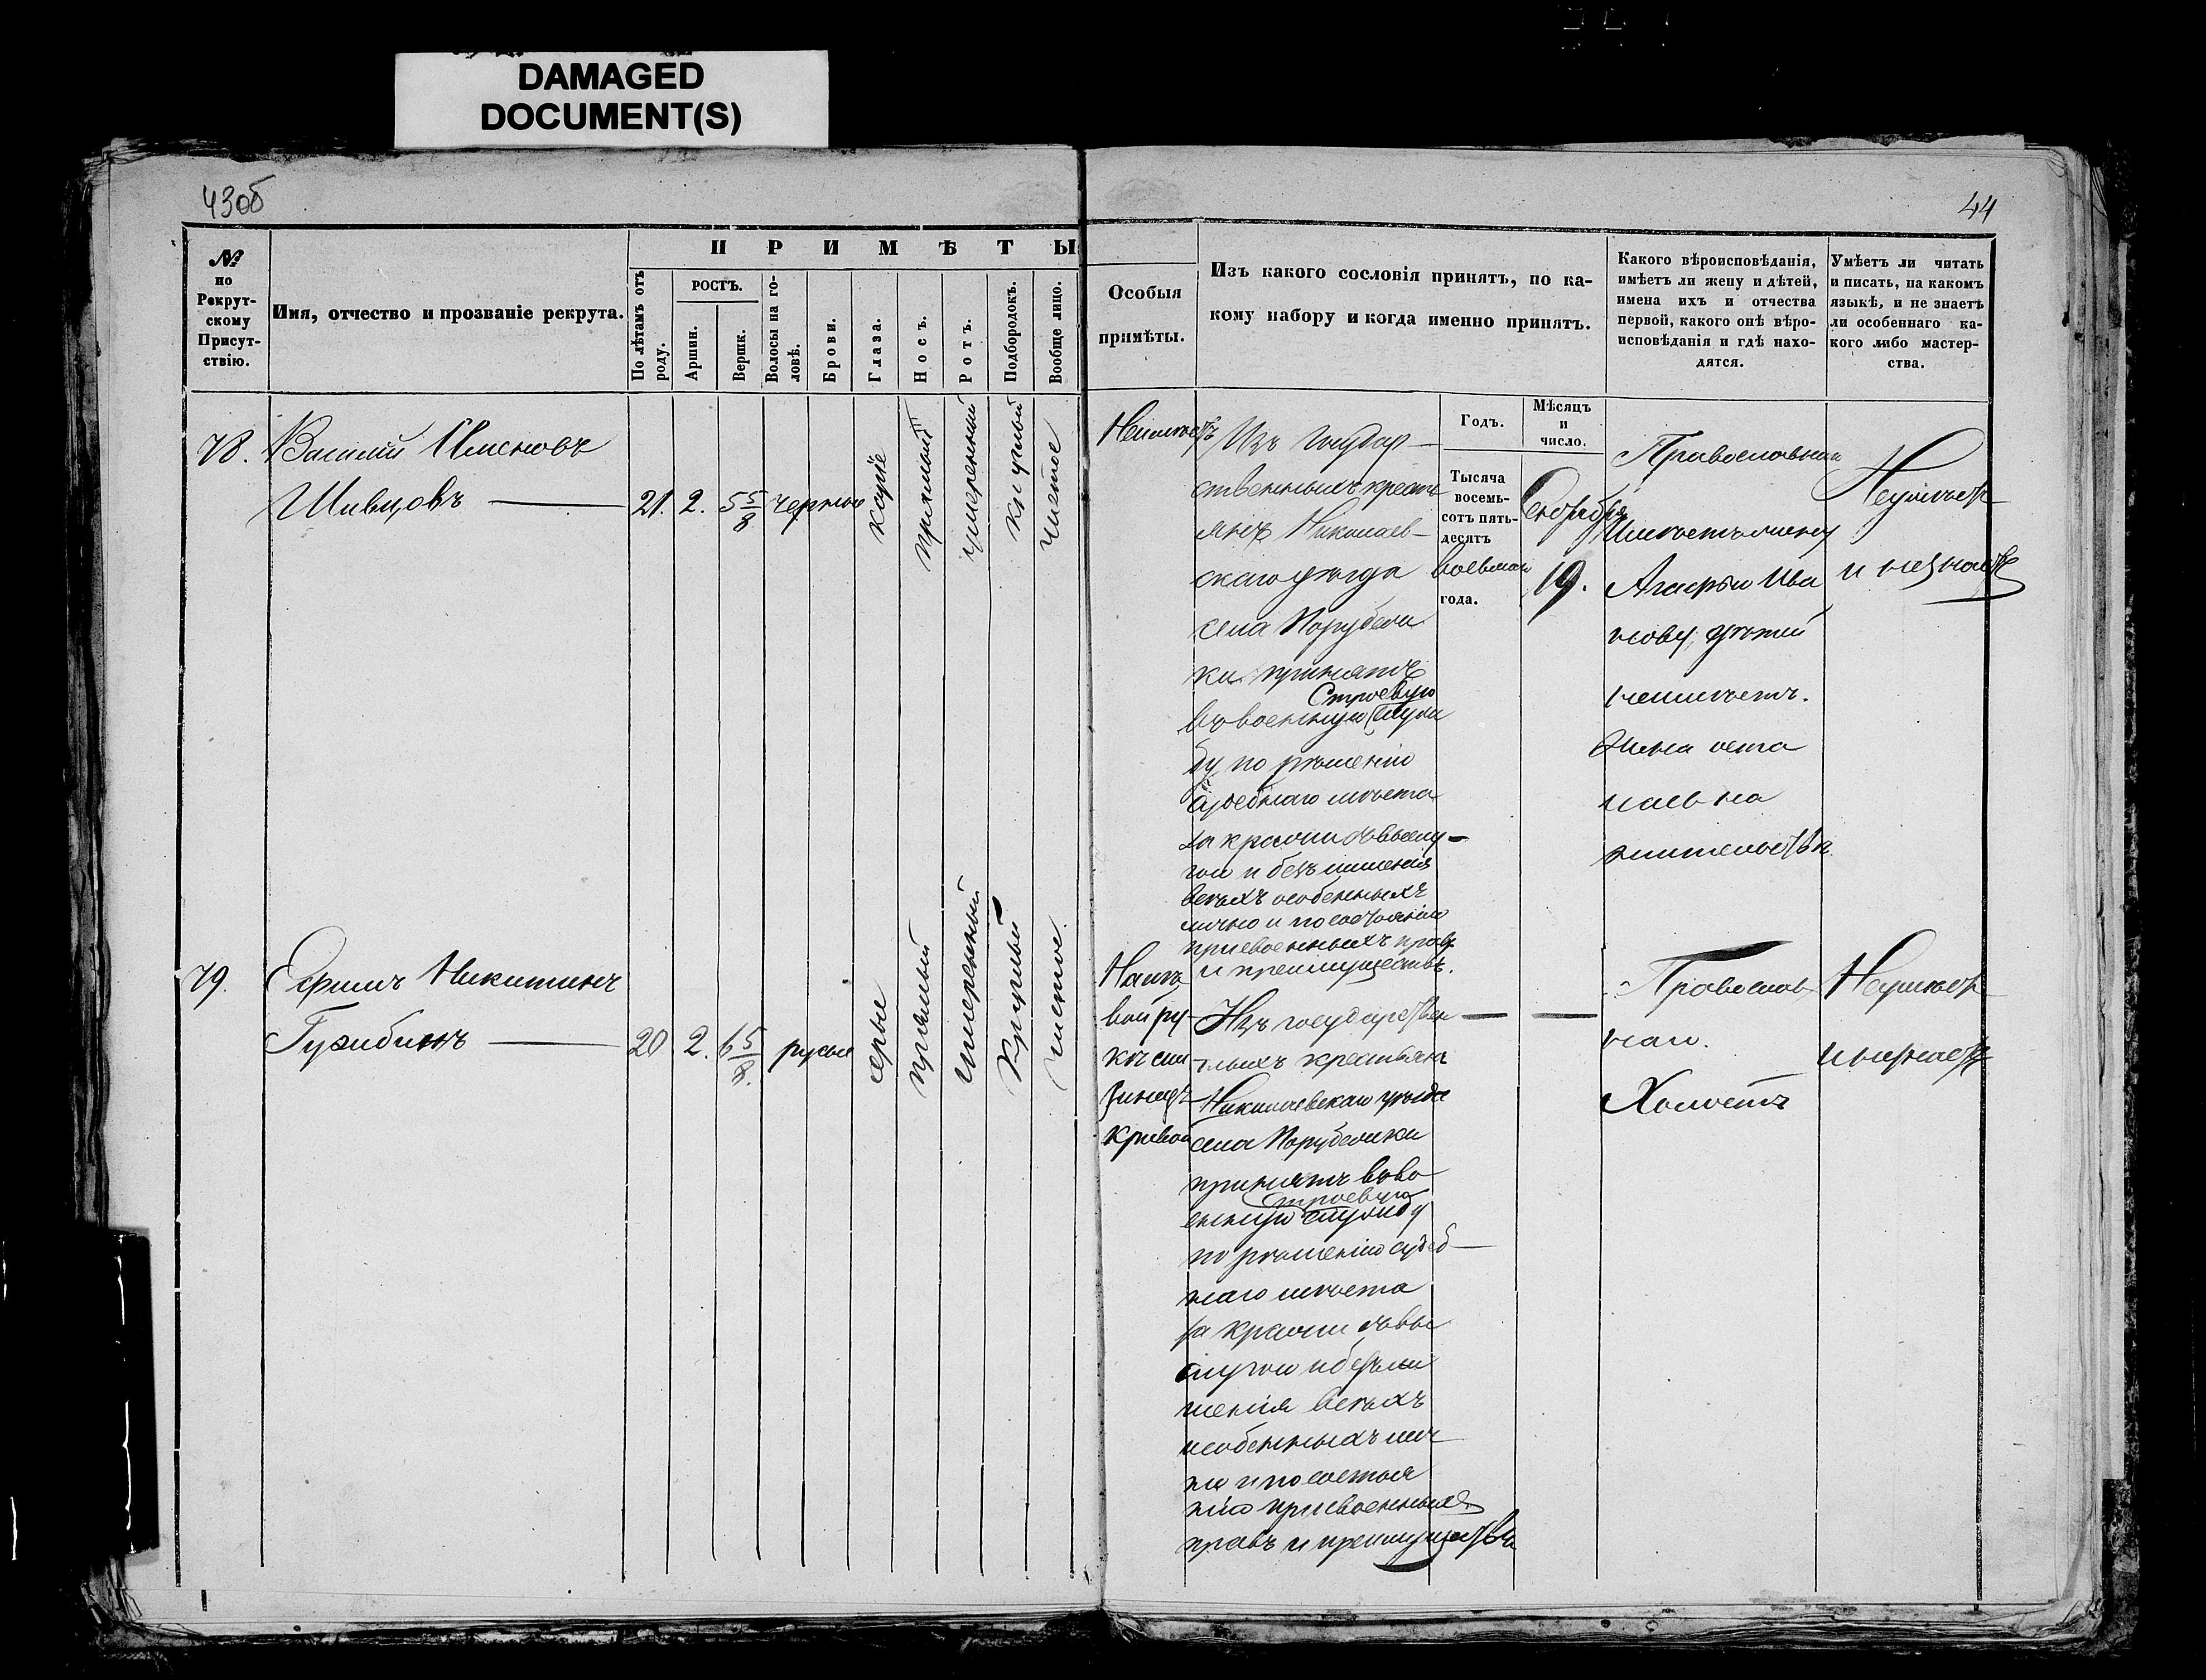 DAMAGED
DOCUMENT(S)
43об
44
№
по
Рекрут-
скому
Присут-
ствію.
Имя, отчество и прозваніе рекрута.
ПРИМѢТЫ
По лѣтамъ отъ
роду.
РОСТЪ.
Аршин.
Вершк.
Волосы на го-
ловѣ.
Брови.
Глаза.
Носъ.
Ротъ.
Подбородокъ.
Вообще лицо.
Особыя
примѣты.
Изъ какого сословія принятъ, по ка-
кому набору и когда именно принятъ.
Какого вѣроисповѣданія,
имѣетъ ли жену и дѣтей,
имена ихъ и отчества
первой, какого онѣ вѣро-
исповѣданія и гдѣ нахо-
дятся.
Умѣетъ ли читать
и писать, на какомъ
языкѣ, и не знаетъ
ли особеннаго ка-
кого либо мастер-
ства.
Годъ.
Мѣсяцъ
и
число.
78.
Василій Семеновъ
Шивцовъ —
21.
2.
5 5/8
черные
каріе
прямый
умеренный
круглый
чистое
Неимѣетъ
Изъ государ-
ственныхъ кресть
янъ Николаев-
скаго уѣзда
села Порубеж
ки принятъ
Строевую
въ военную служ
бу по рѣшенію
судебнаго мѣста
за кражи съ выслу-
гою и безъ лишенія
всѣхъ особенныхъ
лично и по состоянію
присвоенныхъ правъ
и преимуществъ.
Тысяча
восемь-
сотъ пять-
десятъ
восьмаго
года.
Октября
19.
Православнаго
Имѣетъ жену
Агафью Ива
нову, дѣтей
неимѣетъ.
Жена оста
лась на
жительствѣ
Неумѣетъ
и незнаетъ
79.
Ефимъ Никитинъ
Гужбинъ —
20
2.
6 5/8.
русые
серые
прямый
умеренный
круглый
чистое.
На лѣ
вой ру
кѣ ми
зинецъ
кривой
Изъ государствен
ныхъ крестьянъ
Николаевскаго уѣзда
села Порубежки
принятъ въ во
строевую
енную службу
по рѣшенію судеб-
наго мѣста
за кражи съ вы
слугою и безъ ли
шенія всѣхъ
особенныхъ лич
но и по состоя
нію присвоенныхъ
правъ и преимуществъ
— —
Православ
наго.
Холостъ
Неумѣетъ
и незнаетъ